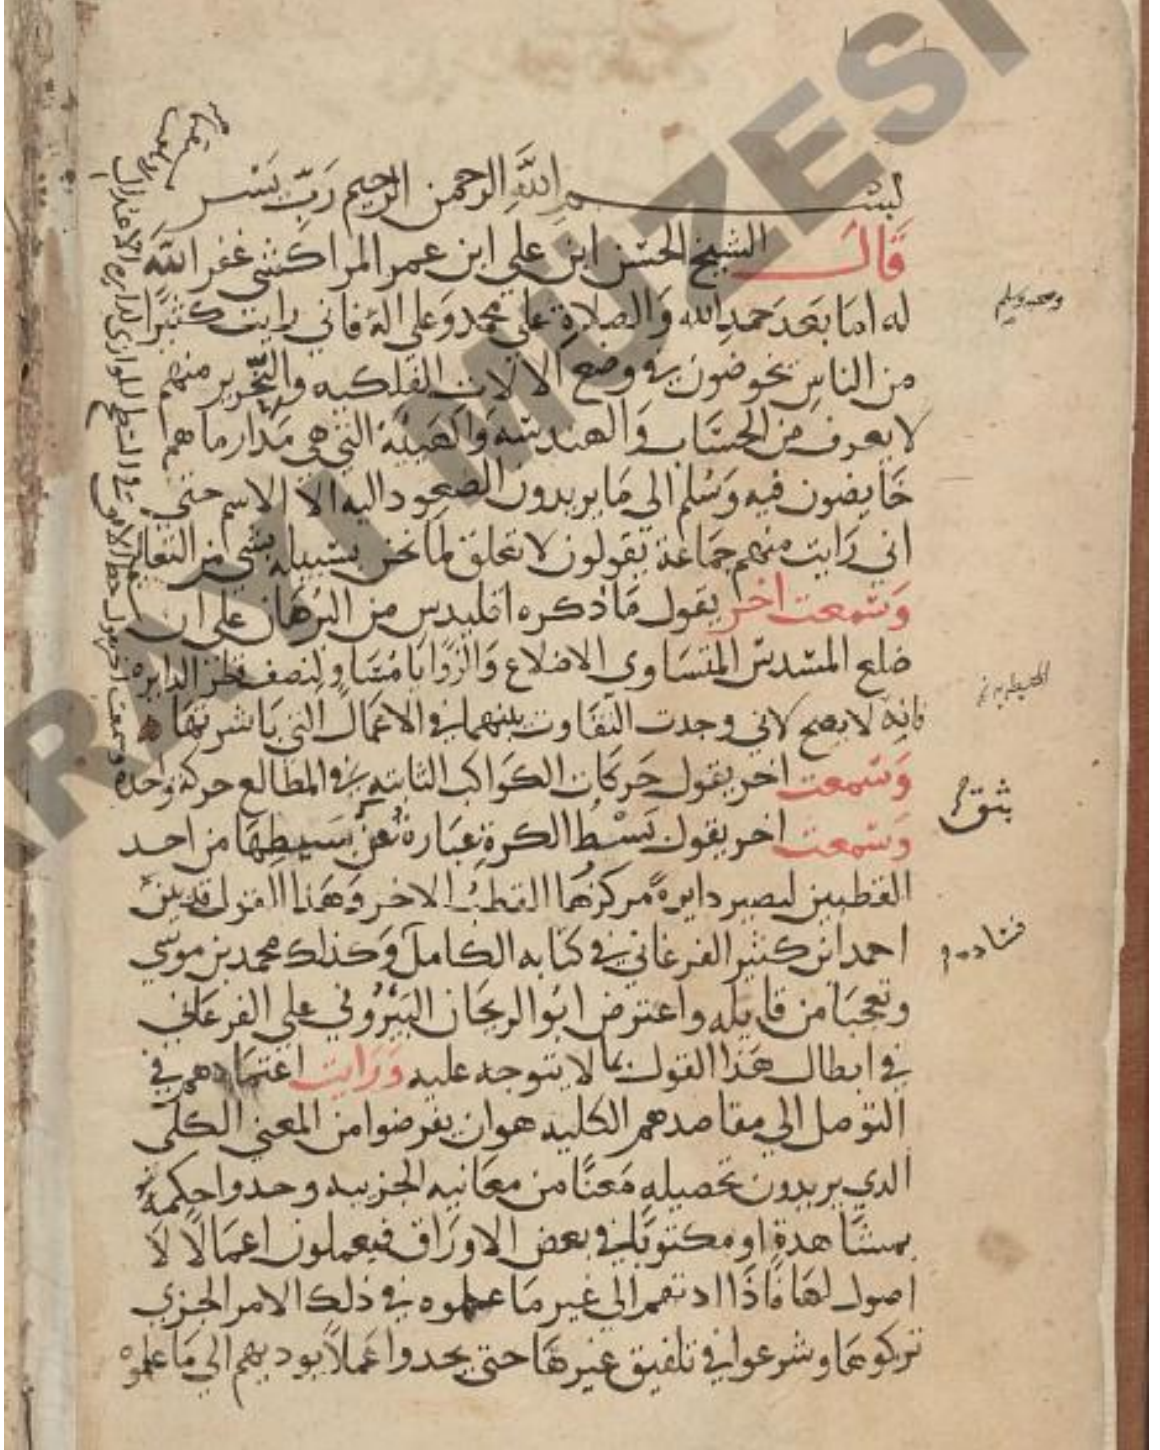 بسم الله الرحمن الرحيم رب يسر
قال الشيخ الحسن ابن علي ابن عمر المراكشي غفر الله
له اما بعد حمد الله والصلاة علي محمد وعلي اله فاني رايت كثيرا
وصحبه وسلم
من الناس يخوضون في وضع الالات الفلكيه والتحرير منهم
لا يعرف من الحساب والهندسة والهيئة التي هي مدار ما هم
خايضون فيه وسلم الي ما يريدون الصعود اليه الا الاسم حتي
اني رايت منهم جماعة يقولون لا تعلق لما نحن بسبيله بشي من التعاليم
وسمعت اخر يقول ما ذكره اقليدس من البرهان علي ان
ضلع المسدس المتساوي الاضلاع والزوايا مساو لنصف قطر الدايرة
المحيطة به
فانه لا يصح لاني وجدت التفاوت بينهما في الاعمال التي باشرتها
وسمعت اخر يقول حركات الكواكب الثابته في المطالع حركة واحدة
وسمعت اخر يقول بسط الكرة عبارة عن بسيطها من احد
القطبين ليصير دايرة مركزها القطب الاخر وهذا القول قد بين
احمد ابن كثير الفرغاني في كتابه الكامل وكذلك محمد بن موسي
فساده
وتعجبا من قايله واعترض ابو الريحان البيروني علي الفرغاني
في ابطال هذا القول بما لا يتوجه عليه ورايت اعتمادهم في
التوصل الي مقاصدهم الكليه هو ان يفرضوا من المعني الكلي
الذي يريدون تحصيله معنا من معانيه الجزييه وجدوا حكمه
بمشاهدة او مكتوبا في بعض الاوراق فيعملون اعمالا لا
اصول لها فاذا ادتهم الي غير ما علموه في ذلك الامر الجزي
تركوها وشرعوا في تلفيق غيرها حتي يجدوا عملا يوديهم الي ما علموه
وسمعت اخر يقول خط الافق في السطح الموازي لدايرة الاعتدال
MÜZESİ